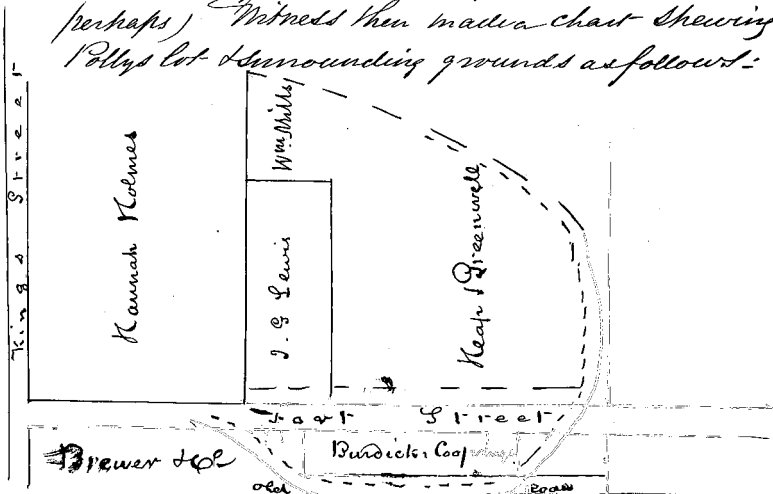 perhaps) Witness then made a chart shewing
Pollys lot & surrounding grounds as follows:-
Kings Street
Hannah Holmes
Wm Mills
J. G Lewis
Heap & Greenwell
Fort Street
Brewer & Co
Burdicks Coop
old Road